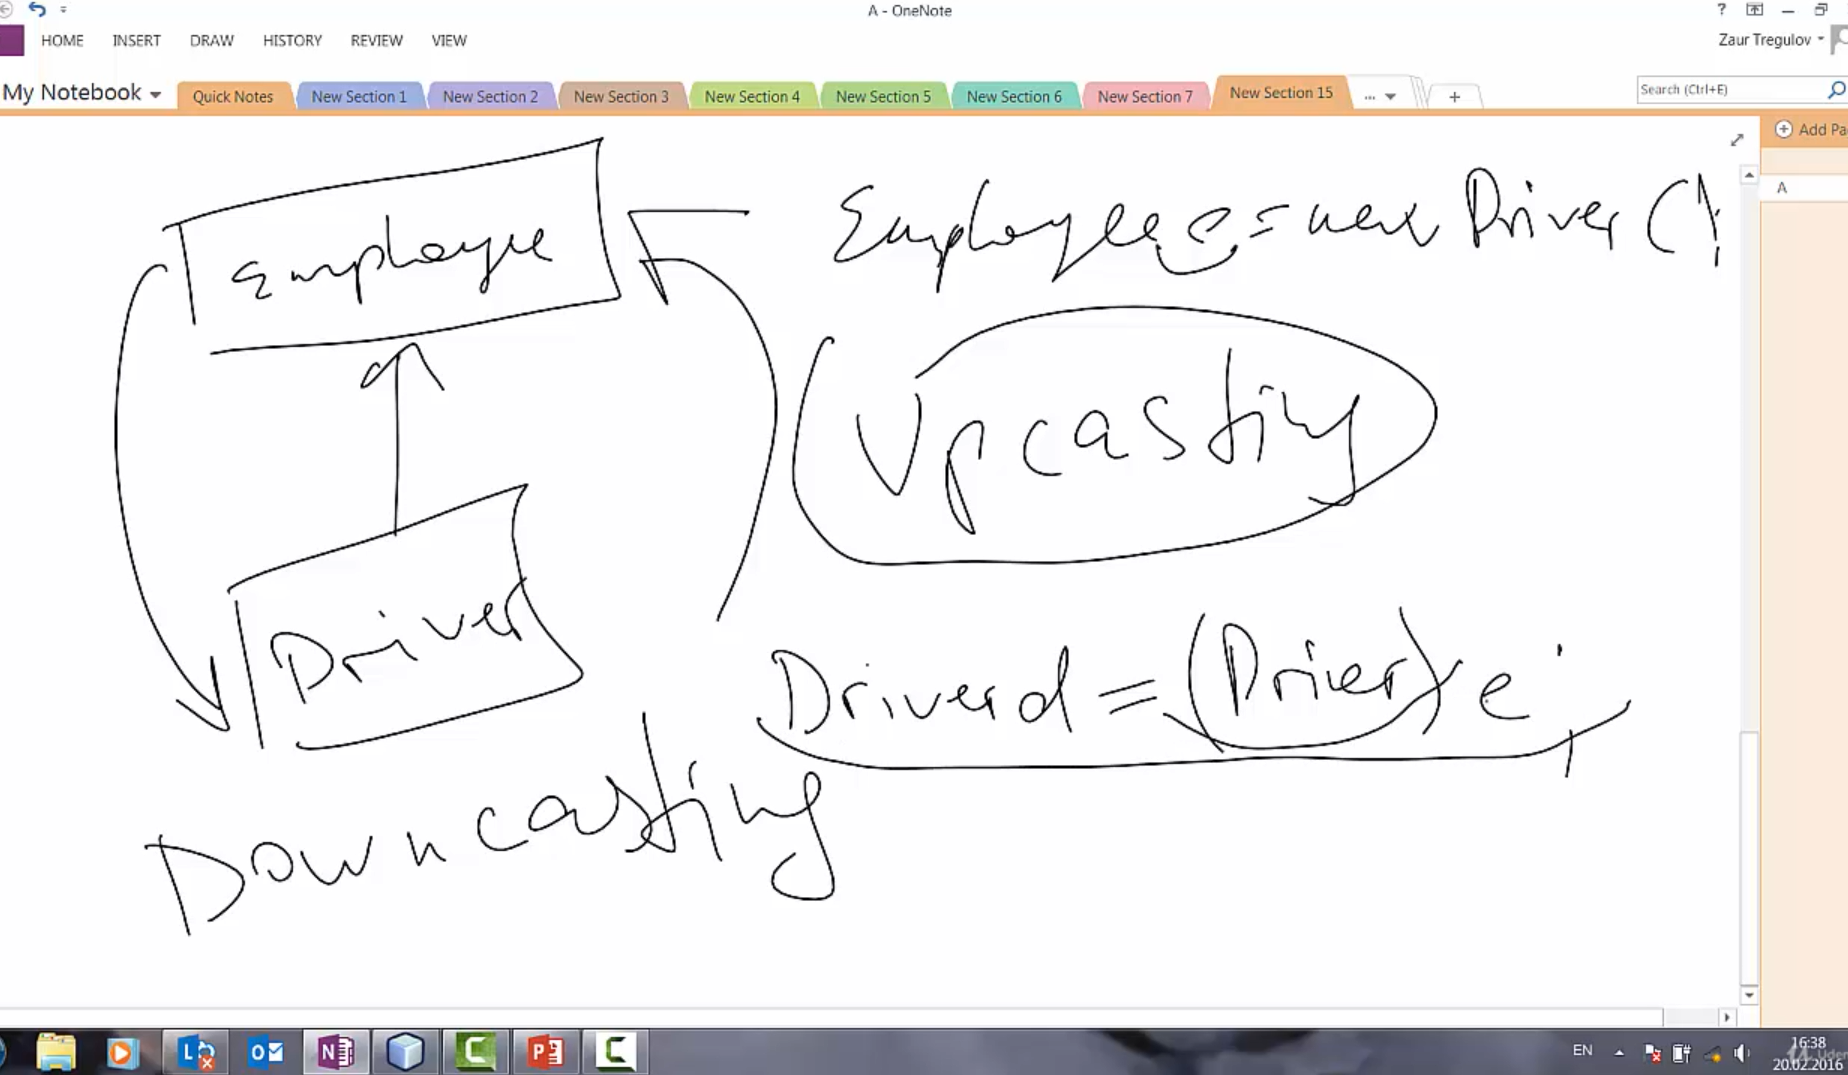 A - OneNote
HOME INSERT DRAW HISTORY REVIEW VIEW
Zaur Tregulov
My Notebook
Quick Notes
New Section 1
New Section 2
New Section 3
New Section 4
New Section 5
New Section 6
New Section 7
New Section 15
...
Search (Ctrl+E)
Add Pa
A
Employee
Employee e = new Driver ();
Upcasting
Driver
Driver d = (Driver) e;
Downcasting
EN
16:38
20.02.2016